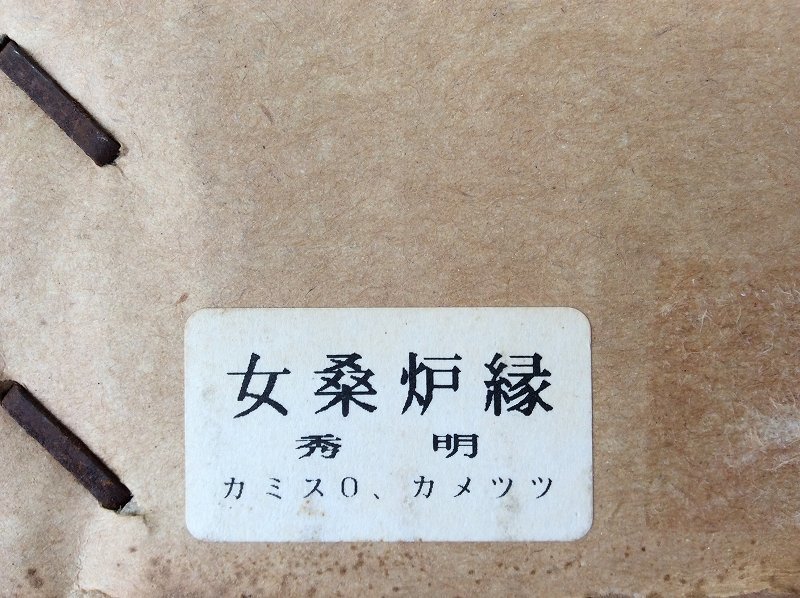 女桑炉縁
秀明
カミス0、カメツツ